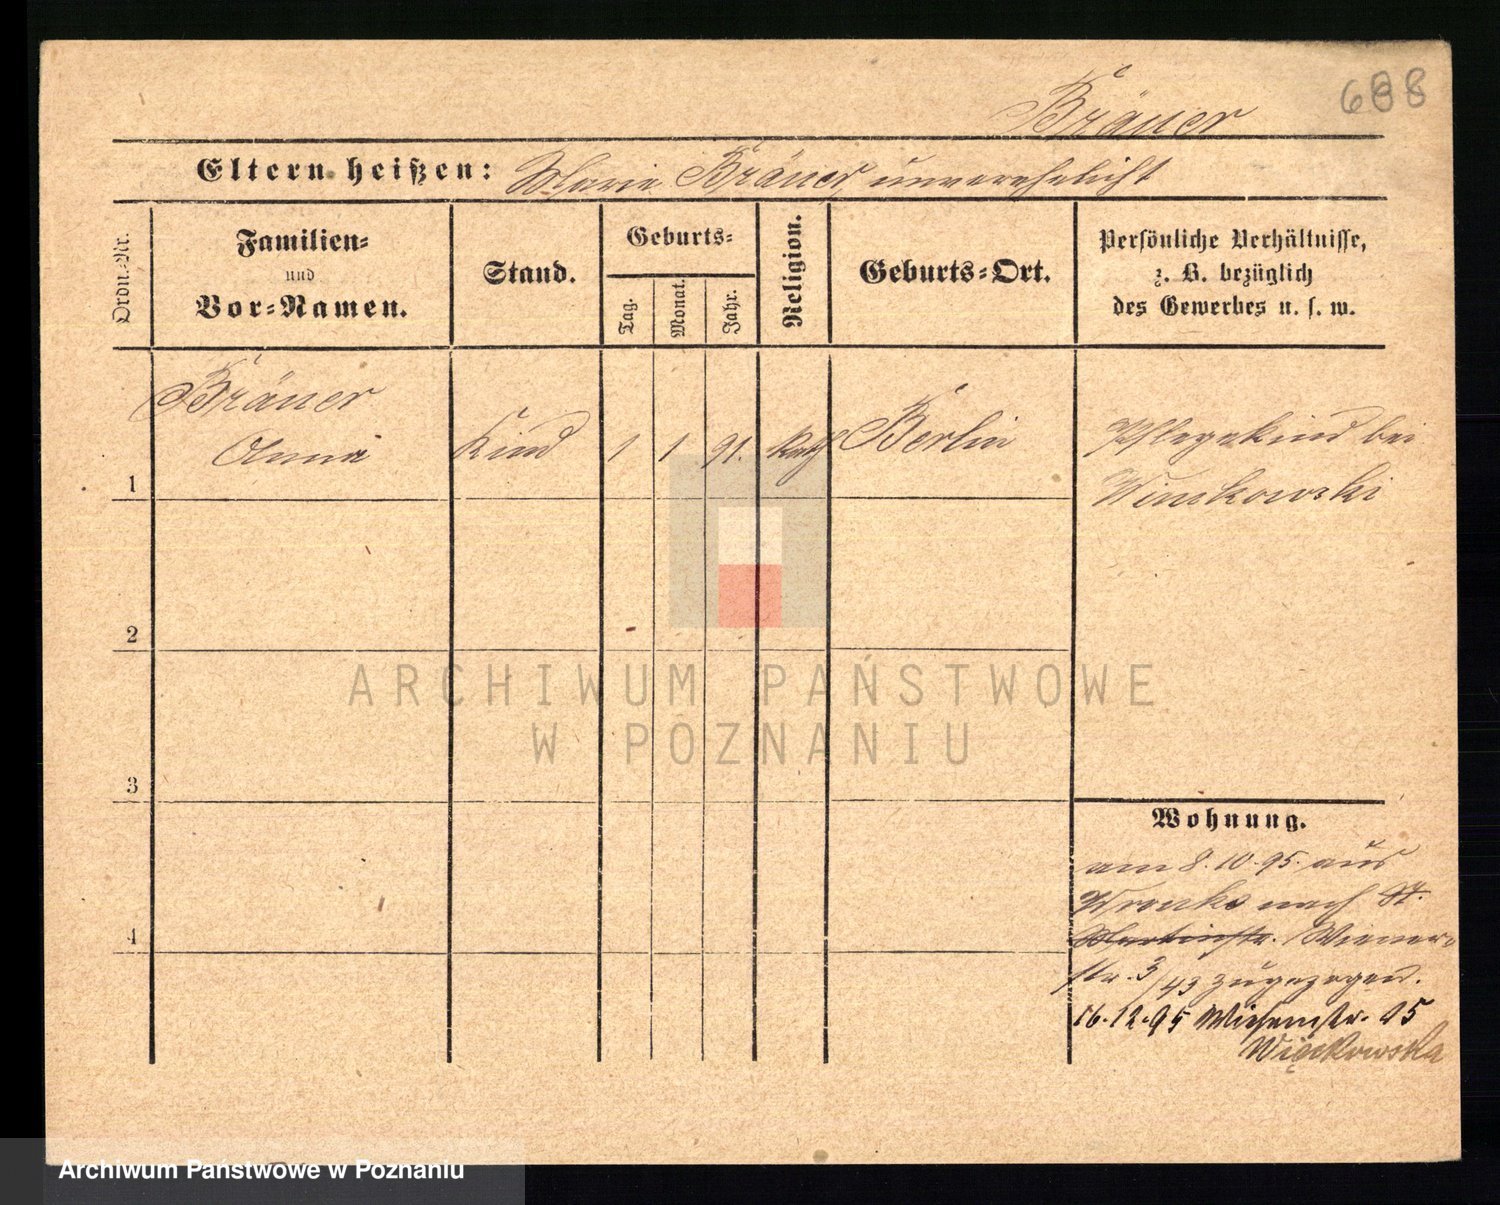 688
Bräuer
Eltern heißen: Marie Bräuer unverehelicht
Ordn.-Nr.
Familien-
und
Vor-Namen.
Stand.
Geburts-
Tag.
Monat.
Jahr.
Religion.
Geburts-Ort.
Persönliche Verhältnisse,
z. B. bezüglich
des Gewerbes u. s. w.
Bräuer
Anna
1
Kind
1
1
91.
Kath
Berlin
Pflegekind bei
2
3
4
ARCHIWUM PAŃSTWOWE
W POZNANIU
Wohnung.
am 8.10.95. aus
Wronke nach St.
Martinstr. Wiener
str. 3/43 zugezogen.
16.12.95 Wiesenstr. 15
Więckowska
Archiwum Państwowe w Poznaniu